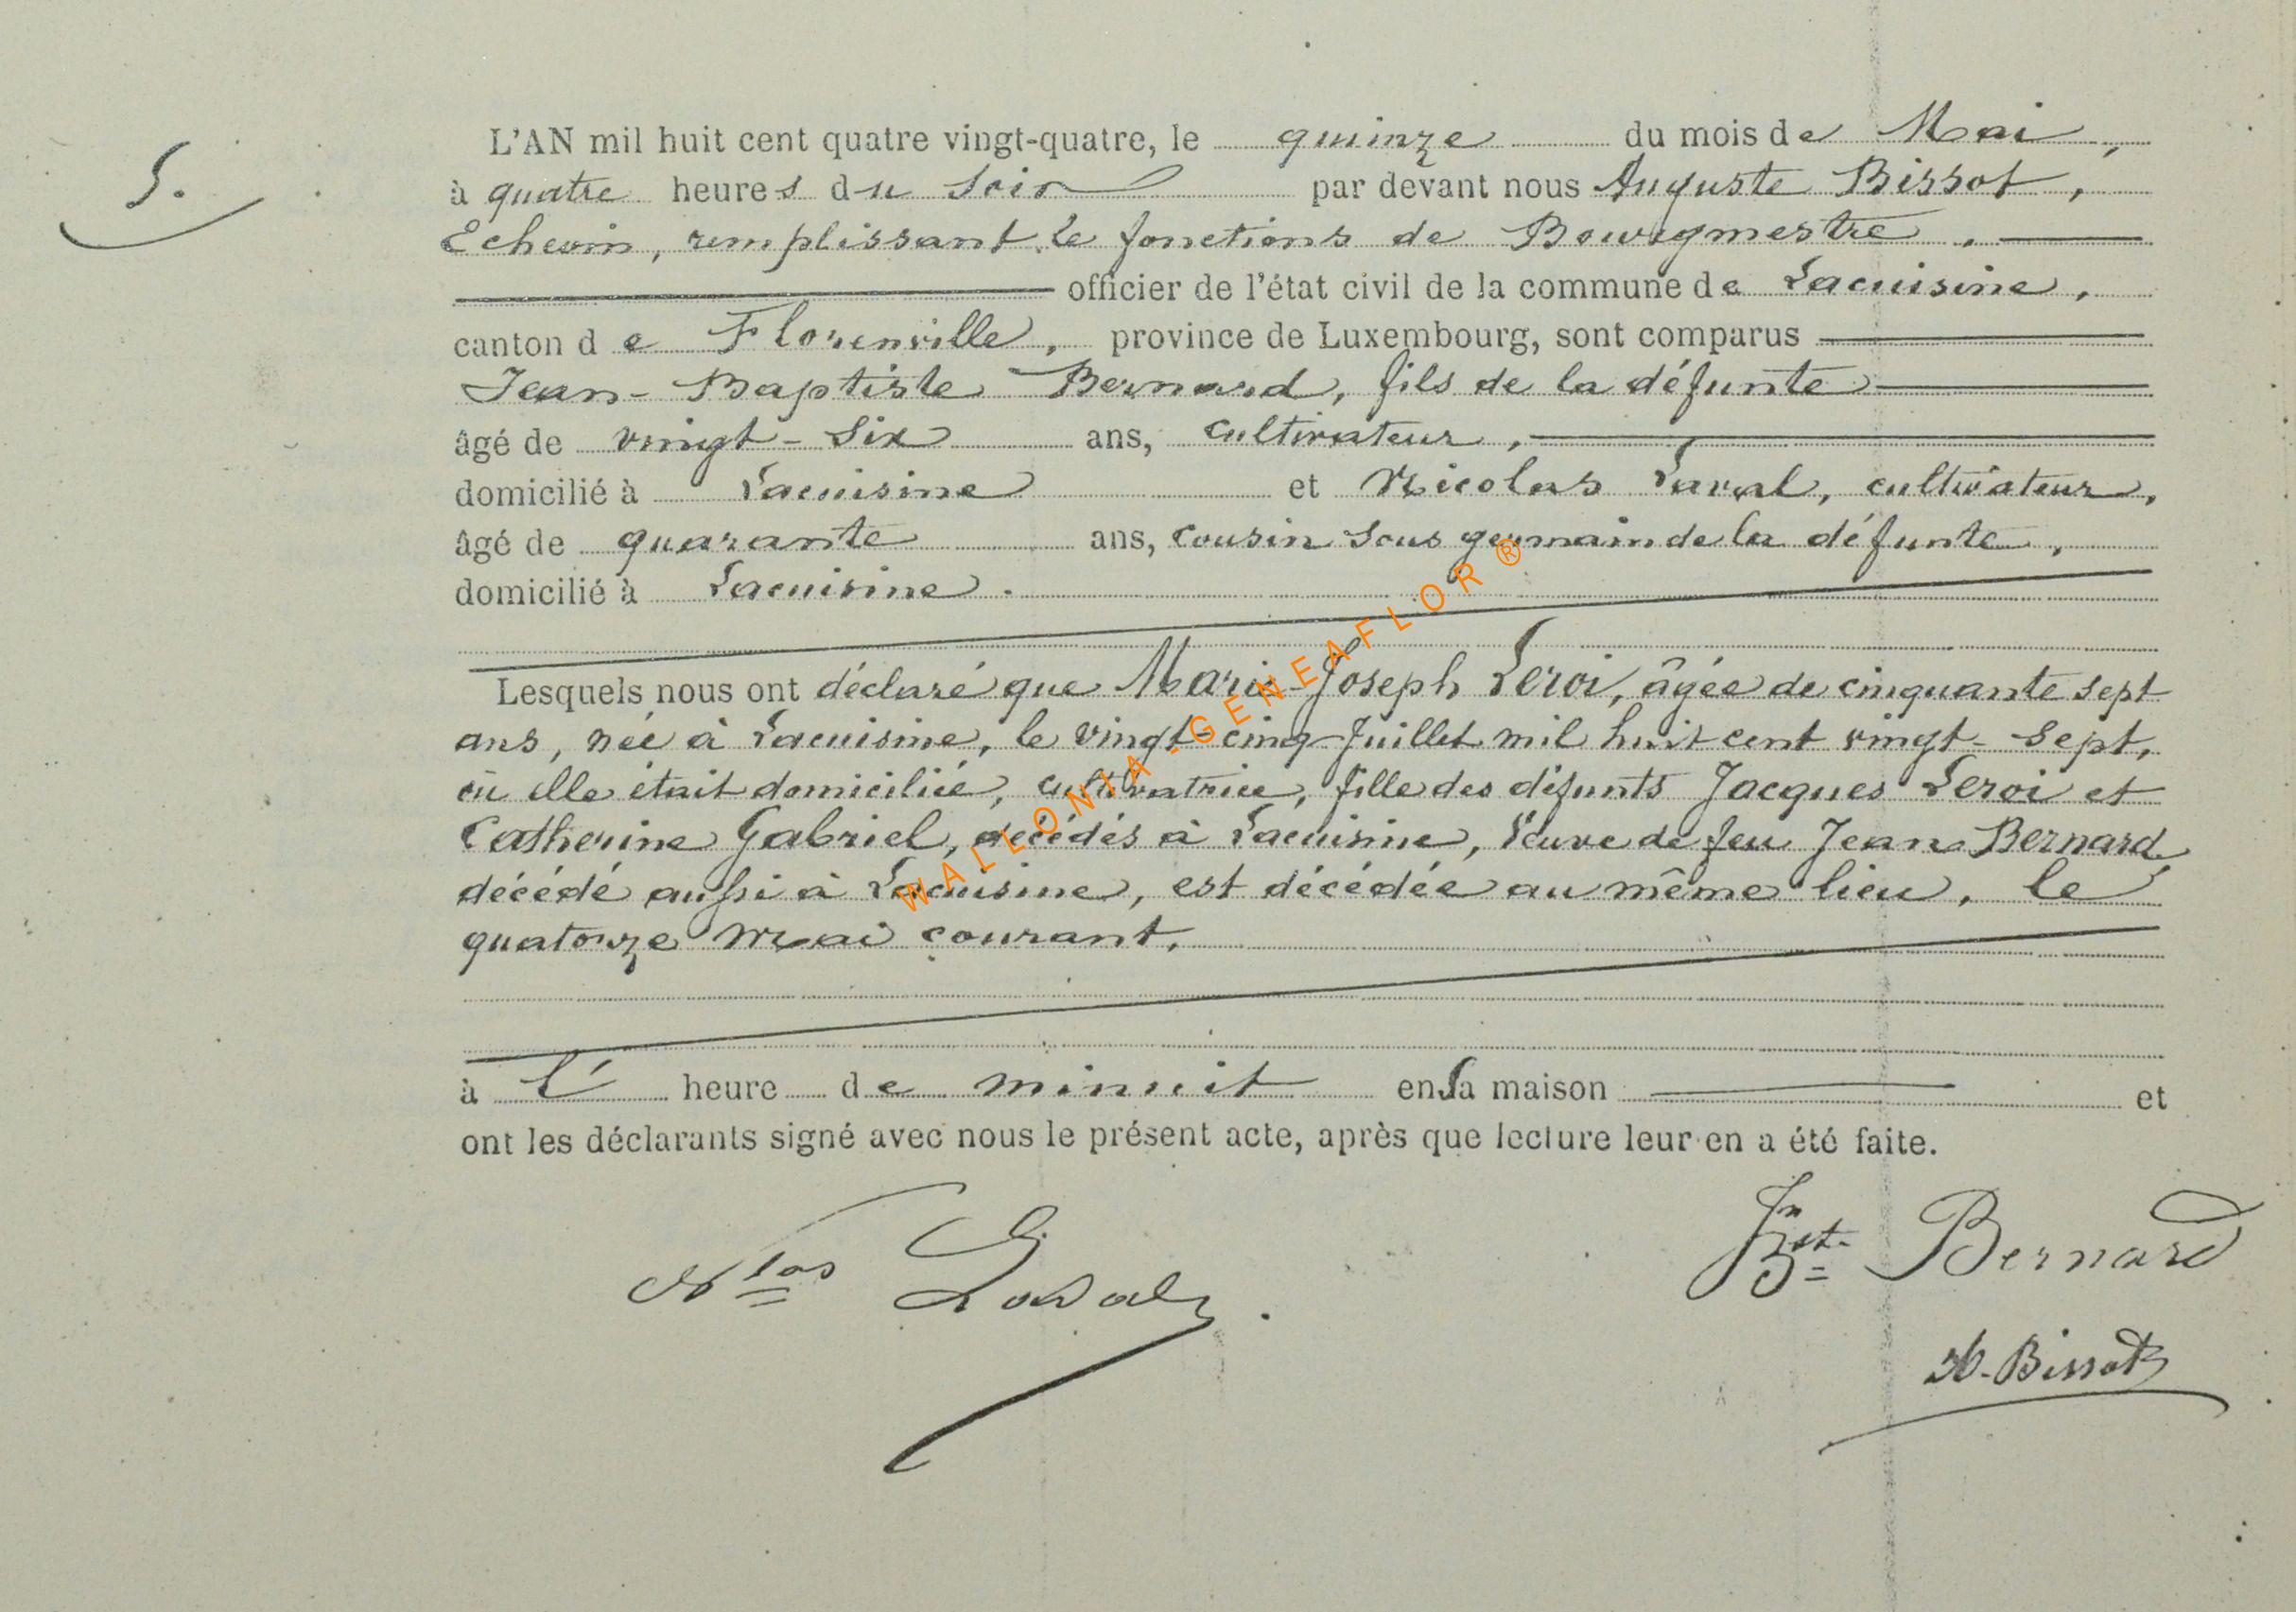 5.
L'AN mil huit cent quatre vingt-quatre, le quinze du mois de Mai,
à quatre heures du Soir par devant nous Auguste Bissot,
Echevin, remplissant le fonctions de Bourgmestre,
officier de l'état civil de la commune de Lacuisine,
canton de Florenville, province de Luxembourg, sont comparus
Jean-Baptiste Bernard, fils de la défunte
âgé de vingt-six ans, cultivateur,
domicilié à Lacuisine et Nicolas Laval, cultivateur,
âgé de quarante ans, cousin sous germain de la défunte,
domicilié à Lacuisine.
Lesquels nous ont déclaré que Marie-Joseph Leroi, âgée de cinquante sept
ans, née à Lacuisine, le vingt-cinq Juillet mil huit cent vingt-sept,
où elle était domiciliée, cultivatrice, fille des défunts Jacques Leroi et
Catherine Gabriel, décédés à Lacuisine, Veuve de feu Jean Bernard,
décédé aussi à Lacuisine, est décédée au même lieu, le
quatorze mai courant,
à l' heure de minuit en sa maison et
ont les déclarants signé avec nous le présent acte, après que lecture leur en a été faite.
Nlas Laval.
Jn Bst. Bernard
A. Bissot
WALLONIA-GENEAFLOR ®